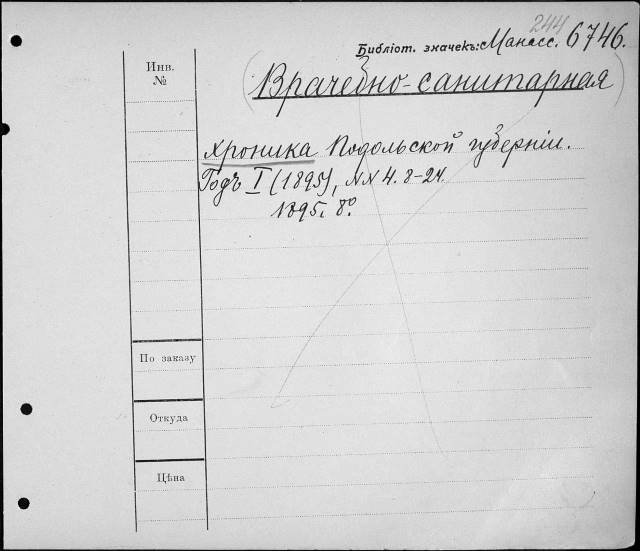 244
Библіот. значекъ: Манасс. 6746.
Инв.
№
(Врачебно-санитарная)
хроника Подольской губерніи.
Годъ I (1895), NN 4. 8-24.
1895. 8°.
По заказу
Откуда
Цѣна